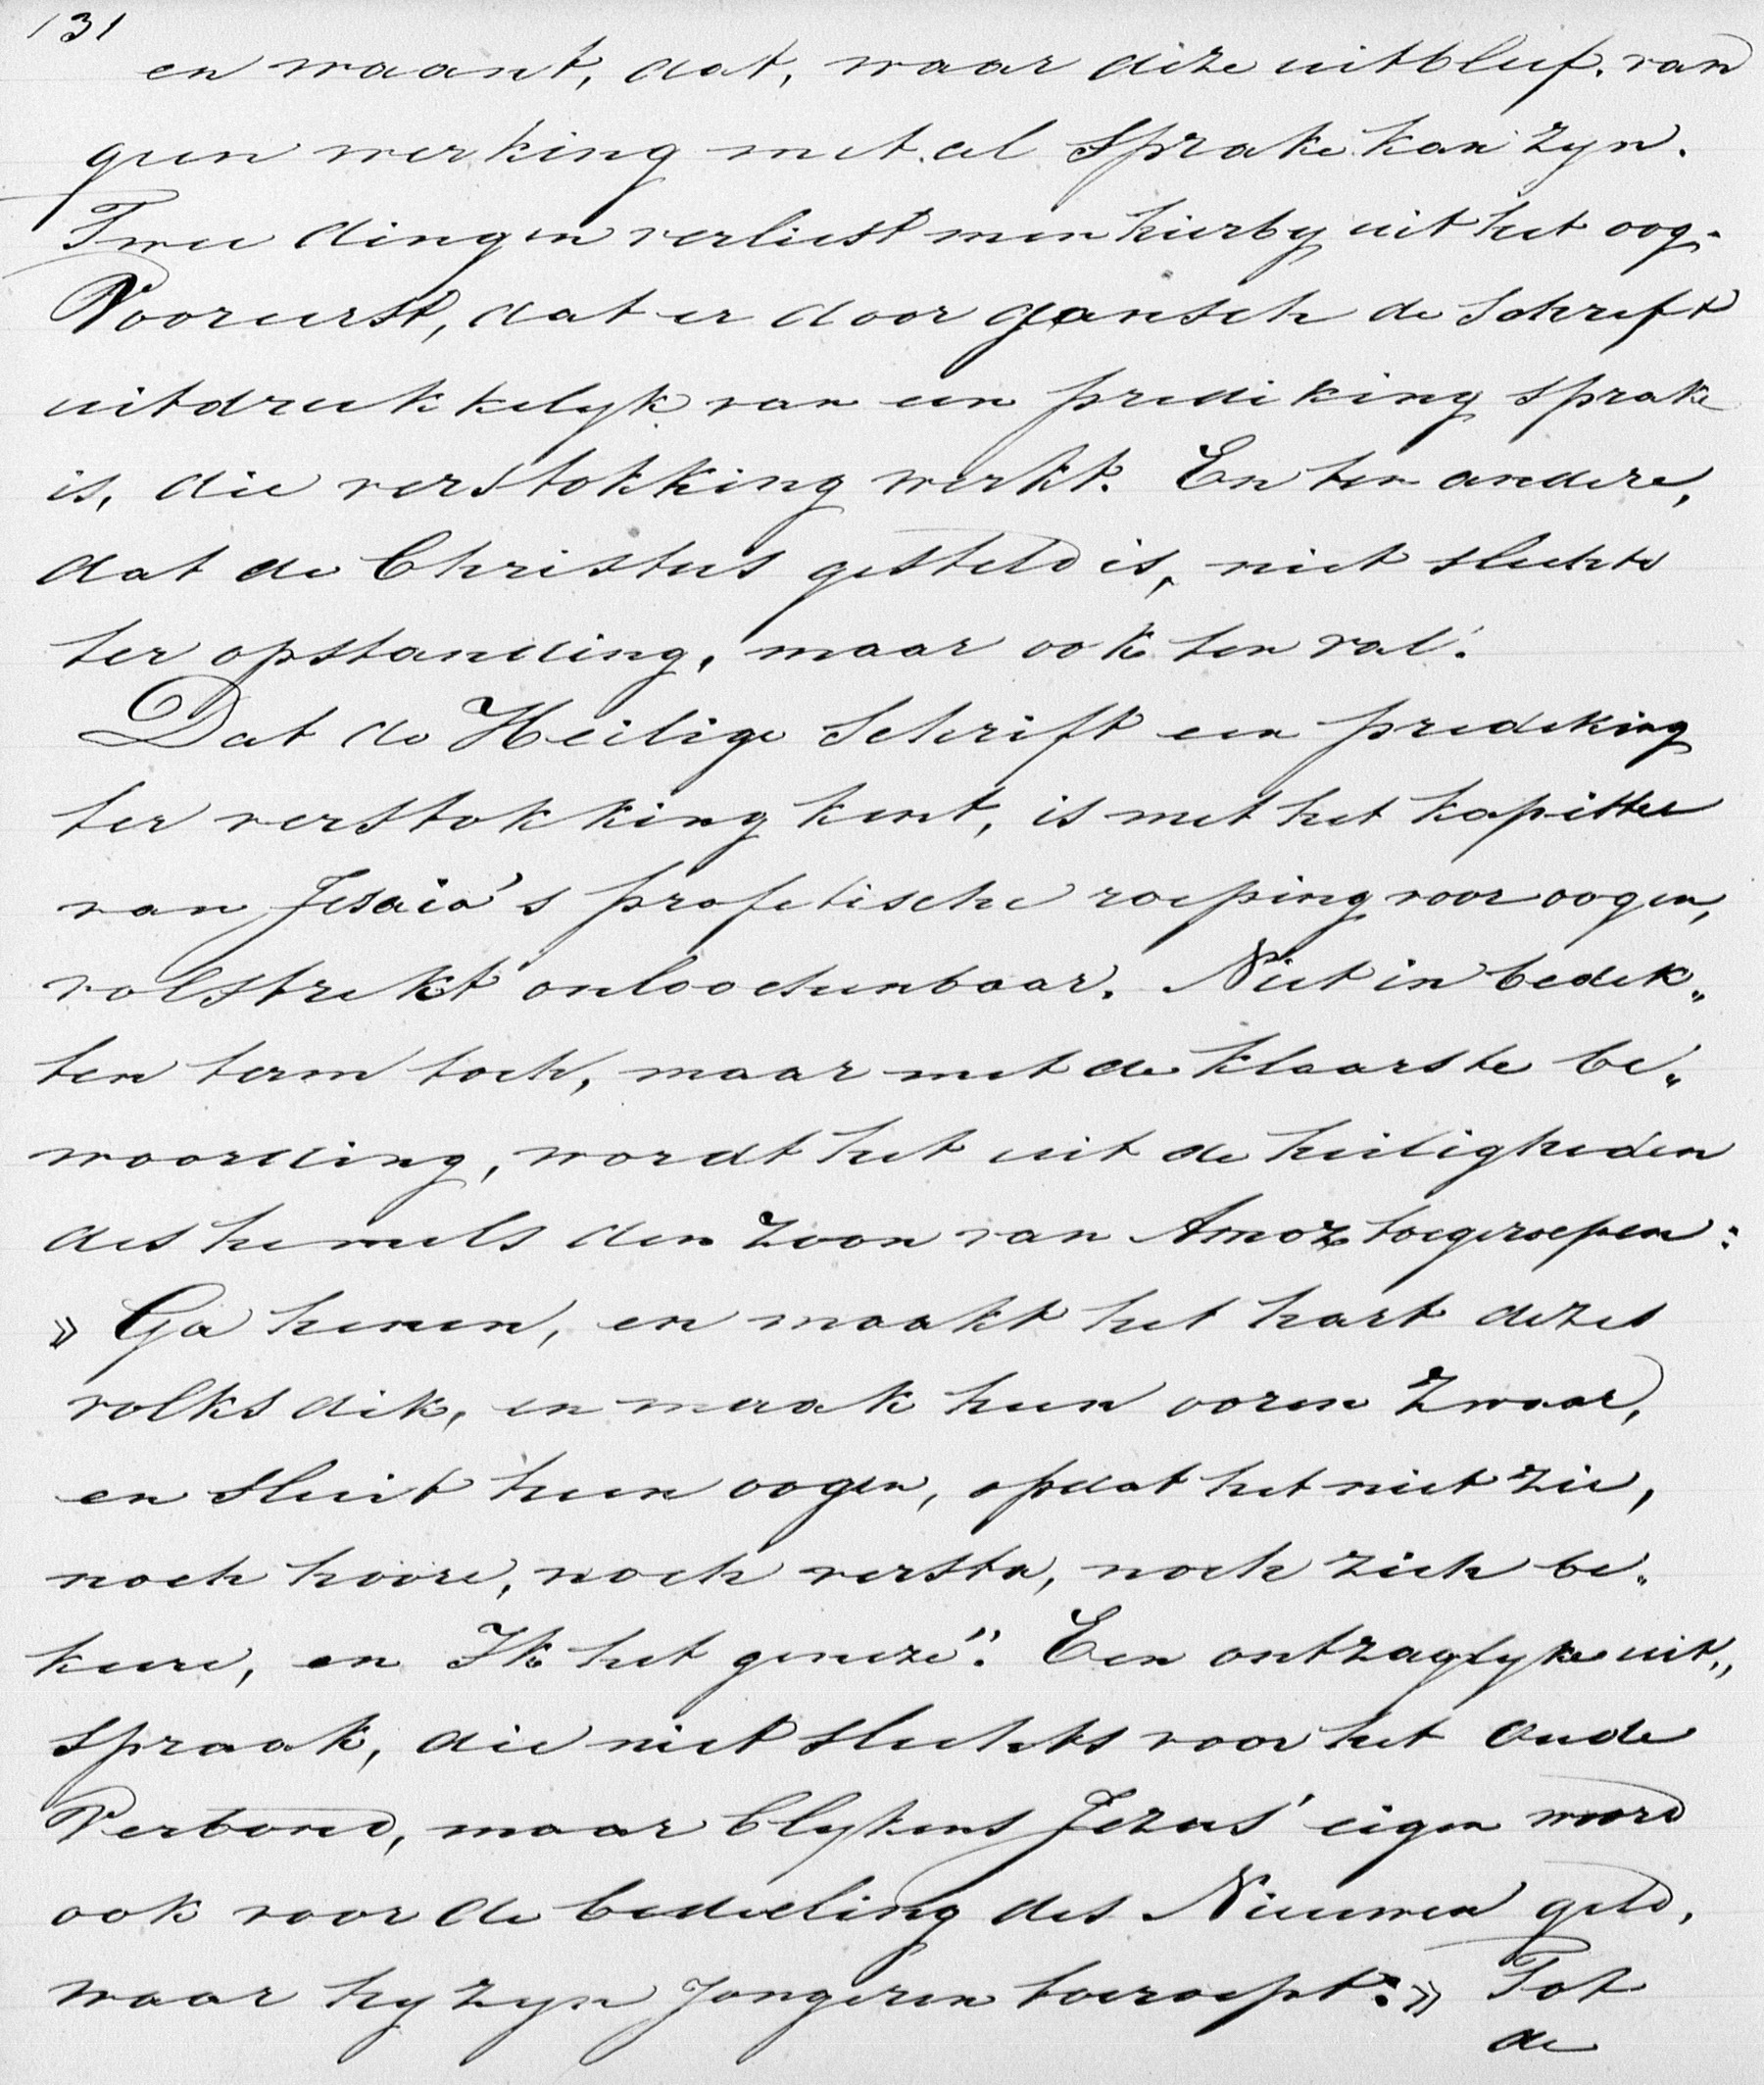 131
en waant, dat, waar deze uitbleef, van
geen werking met al sprake kan zyn.
Twee dingen verliest men hierby uit het oog.
Vooreerst, dat er door gansch de Schrift
uitdrukkelyk van een prediking sprake
is, die verstokking werkt. En ten andere,
dat de Christus gesteld is, niet slechts
ter opstanding, maar ook ten val.
Dat de Heilige Schrift een prediking
ter verstokking kent, is met het kapittel
van Jesaia's profetische roeping voor oogen,
volstrekt onloochenbaar. Niet in bedek„
ten term toch, maar met de klaarste be„
woording, wordt het uit de heiligheden
des hemels den zoon van Amoz toegeroepen:
» Ga henen, en maakt het hart dezes
volks dik, en maak hun ooren zwaar,
en sluit hun oogen, opdat het niet zie,
noch hoore, noch versta, noch zich be„
keere, en Ik het geneze". Een ontzaglyke uit„
spraak, die niet slechts voor het Oude
Verbond, maar blykens Jezus' eigen woord
ook voor de bedeeling des Nieuwen geld,
waar hy zyn Jongeren toeroept: » Tot
de